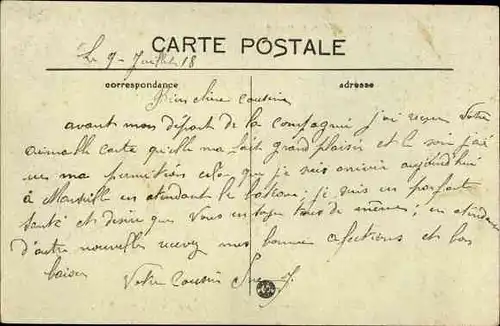 CARTE POSTALE
Le 9 Juillet 18
correspondance
adresse
Bien chère cousine
avant mon départ de la compagnie j'ai reçu Votre
aimable carte qu'elle ma fait grand plaisir et le soir j'ai
eu ma permition cela que je suis arriver aujourd'hui
à Marseille en atendant le bateau; je suis en parfait
santé et desire que Vous en soyer tous de mêmes; en atendan
d'autre nouvelles recevez mes bonnes afections et bos
baiser
Votre Cousin